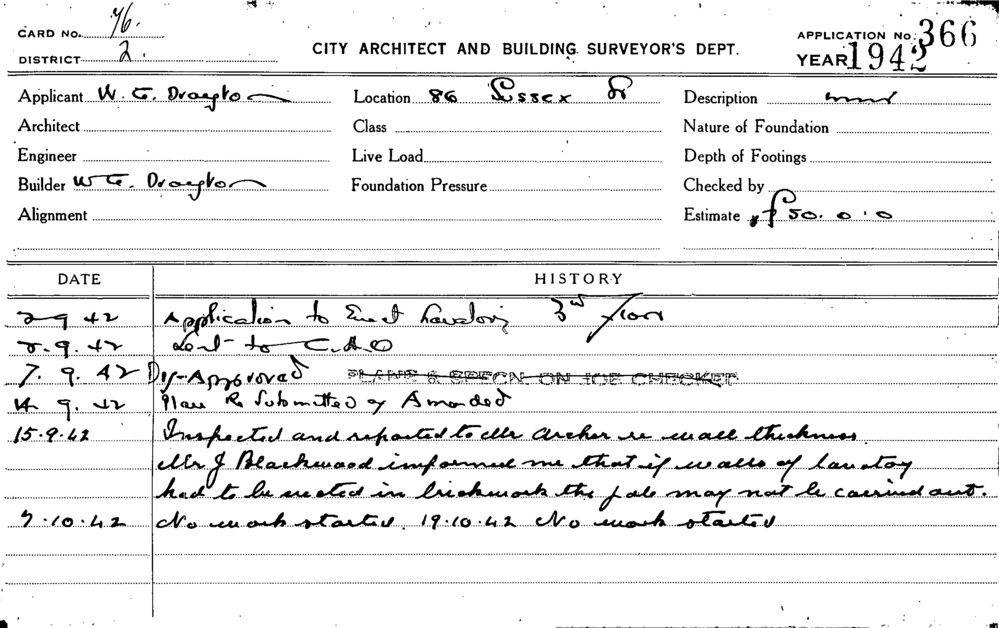 CARD NO. 76.
DISTRICT 2.
CITY ARCHITECT AND BUILDING SURVEYOR'S DEPT.
APPLICATION No. 366
YEAR 1942
Applicant W. G. Drayton Location 86 Sussex St Description
Architect Class Nature of Foundation
Engineer Live Load Depth of Footings
Builder W G. Drayton Foundation Pressure Checked by
Alignment Estimate £50.0.0
DATE HISTORY
2-9 42 Application to Erect Lavatory 3rd floor
2.9.42 Sent to C.H.O
7.9.42 Dis-Approved PLANS & SPECN. ON JOB CHECKED
14 9.42 Plan Re Submitted as Amended
15.9.42 Inspected and reported to Mr Archer re wall thickness.
Mr J Blackwood informed me that if walls of lavatory
had to be erected in brickwork the job may not be carried out.
7.10.42 No work started. 19.10.42 No work started